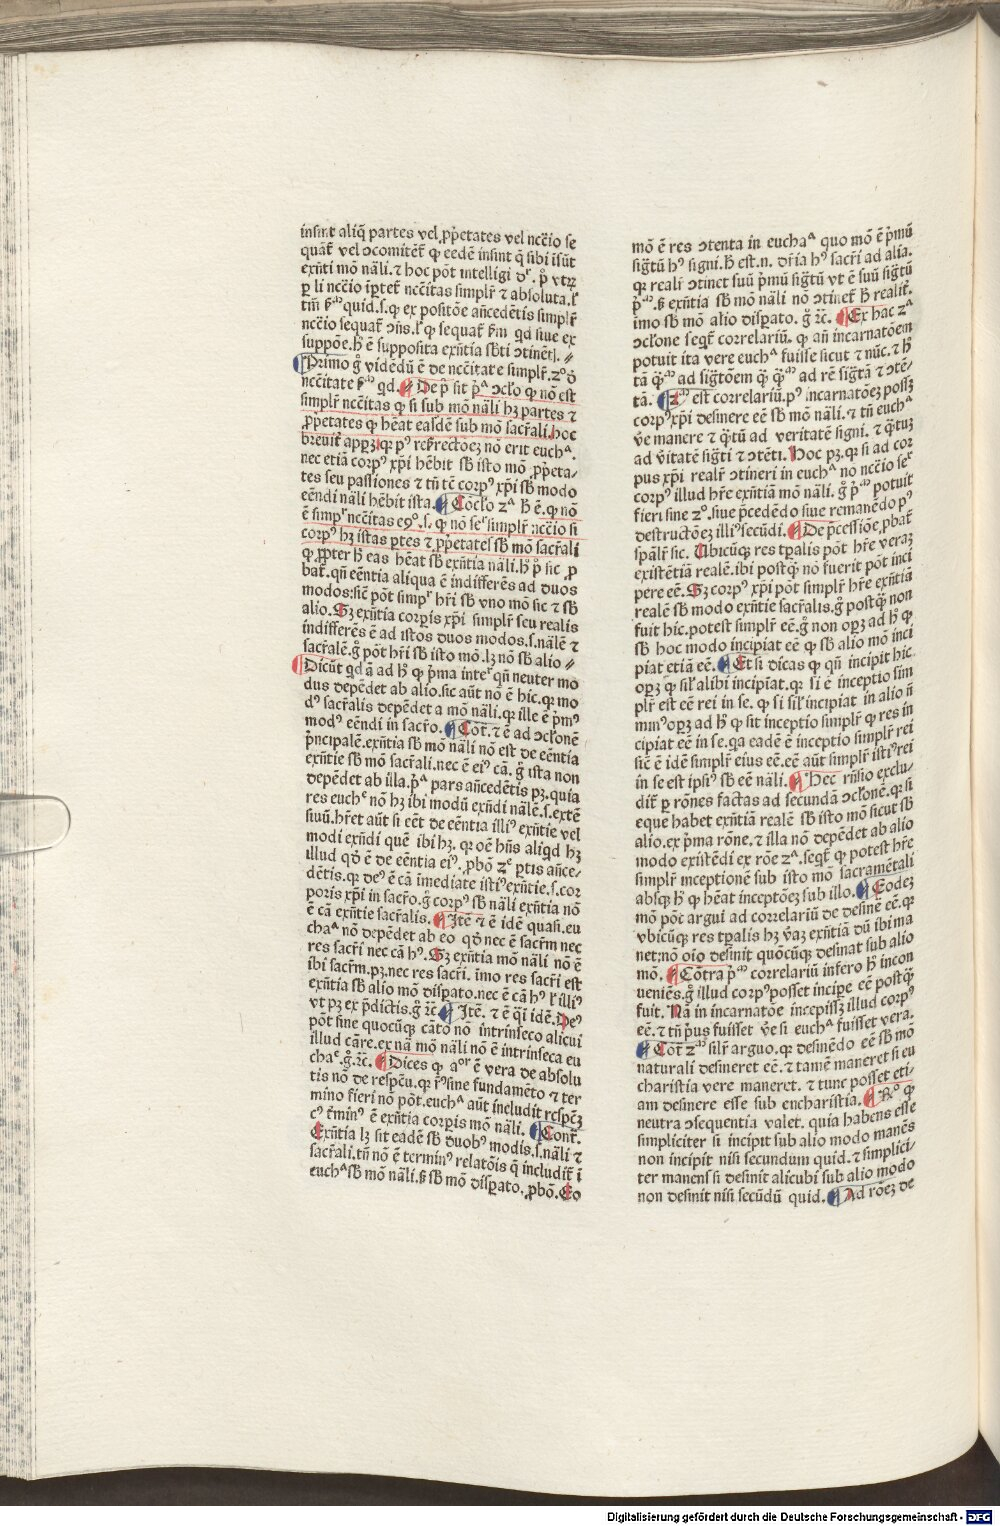 insint aliq̃ partes vel ꝓp̃etates vel nccĩo se
quãt̃ vel ↄcomitẽt̃ ꝙ eedẽ insint q̃ sibi ĩsũt
exñti mõ nãli.⁊ hoc põt intelligi
ꝑ li nccĩo ĩꝑtet̃ nccĩtas simplr̃ ⁊ absoluta.
quid.s.ꝙ ex positõe añcedẽtis simplr̃
nccĩo sequat̃ ↄñs.l̃ ꝙ sequat̃ qd siue ex
suppõe.h̃ ẽ supposita exñtia sb̃ti ↄtinẽt̃.//
Primo g̃ vidẽdũ ẽ de nccĩtate simplr̃.
nccĩtate qd. De sit ↄcl̃o ꝙ nõ est
simplr̃ nccĩtas ꝙ si sub mõ nãli hꝫ partes ⁊
ꝓp̃etates ꝙ hẽat easdẽ sub mõ sacr̃ali.hoc
breuit̃ appꝫ.qꝛ pꝰ reßrectõeꝫ nõ erit euchᵃ.
nec etiã corpꝰ xp̃i hẽbit sb̃ isto mõ ꝓp̃eta-
tes seu passiones ⁊ tñ tẽ corpꝰ xp̃i sb̃ modo
eẽndi nãli hẽbit ista. Cõcl̃o zᵃ h̃ ẽ.ꝙ nõ
ẽ simpʳ nccĩtas .s.ꝙ nõ seʳ simplr̃ nccĩo si
corpꝰ hꝫ istas ꝑtes ⁊ ꝓp̃etates sb̃ mõ sacr̃ali
ꝙ ꝓpter h̃ eas hẽat sb̃ exñtia nãli.h̃ p̃ sic ꝓ
bat̃.qñ eẽntia aliqua ẽ indifferẽs ad duos
modos:sic̃ põt simpʳ hr̃i sb̃ vno mõ sic ⁊ sb̃
alio.Sꝫ exñtia corpis xp̃i simplr̃ seu realis
indifferẽs ẽ ad istos duos modos.s.nãlẽ ⁊
sacr̃alẽ.g̃ põt hr̃i sb̃ isto mõ.lꝫ nõ sb̃ alio //
Dicũt qd ã ad h̃ ꝙ p̃ma inteʳ qñ neuter mo
dus depẽdet ab alio.sic aũt nõ ẽ hic.qꝛ mo
dꝰ sacr̃alis depẽdet a mõ nãli.qꝛ ille ẽ p̃mꝰ
modꝰ eẽndi in sacr̃o. Cõt̃.⁊ ẽ ad ↄcl̃onẽ
p̃ncipalẽ.exñtia sb̃ mõ nãli nõ est de eẽntia
exñtie sb̃ mõ sacr̃ali.nec ẽ eiꝰ cã.g̃ ista non
depẽdet ab illa.p̃ᵃ pars añcedẽtis pꝫ.quia
res euchᵉ nõ hꝫ ibi modũ exñdi nãlẽ.s.extẽ
siuũ.hr̃et aũt si eẽt de eẽntia illiꝰ exñtie vel
modi exñdi quẽ ibi hꝫ.qꝛ oẽ hñs aliqd hꝫ
illud qð ẽ de eẽntia eiꝰ. ꝓbõ zᵉ ꝑtis añce-
dẽtis.qꝛ deꝰ ẽ cã ĩmediate istiꝰ exñtie.s.cor
poris xp̃i in sacr̃o.g̃ corpꝰ sb̃ nãli exñtia nõ
ẽ cã exñtie sacr̃alis. Itẽ ⁊ ẽ idẽ quasi.eu
chaᵃ nõ depẽdet ab eo qð nec ẽ sacr̃m nec
res sacr̃i nec cã hꝰ.Sꝫ exñtia mõ nãli nõ ẽ
ibi sacr̃m.pꝫ.nec res sacr̃i. ĩmo res sacr̃i est
exñtia sb̃ alio mõ disꝑato.nec ẽ cã hꝰ l̃ illiꝰ
vt pꝫ ex p̃dictis.g̃ ⁊c̃ Itẽ. ⁊ ẽ q̃i idẽ.Deꝰ
põt sine quocũqꝫ cãto nõ intrinseco alicui
illud cãre.ex nã mõ nãli nõ ẽ intrinseca eu
chaᵉ.g̃.⁊c̃. Dices ꝙ aoʳ ẽ vera de absolu
tis nõ de respc̃u.qꝛ sine fundamẽto ⁊ ter
mino fieri nõ põt.euchᵃ aũt includit respc̃ꝫ
cꝰ t̃minꝰ ẽ exñtia corpis mõ nãli. Cont̃.
Exñtia lꝫ sit eadẽ sb̃ duobꝰ modis.s.nãli ⁊
sacr̃ali.tñ nõ ẽ terminꝰ relatõis q̃ includit̃ ĩ
euchᵃ sb̃ mõ nãli.ß sb̃ mõ disꝑato.ꝓbõ.Eo
mõ ẽ res ↄtenta in euchaᵃ quo mõ ẽ p̃mũ
sig̃tũ hꝰ signi.h̃ est.n. dr̃ia hꝰ sacr̃i ad alia.
qꝛ realr̃ ↄtinet suũ p̃mũ sig̃tũ vt ẽ suũ sig̃tũ
ß exñtia sb̃ mõ nãli nõ ↄtinet̃ h̃ realit̃.
imo sb̃ mõ alio disꝑato. g̃ ⁊c̃. Ex hac zᵃ
ↄcl̃one seqt̃ correlariũ. ꝙ añ incarnatõem
potuit ita vere euchᵃ fuisse sicut ⁊ nũc.⁊ h̃
tã ad sig̃tõem ad rẽ sig̃tã ⁊ ↄtẽ-
tã. est correlariũ.pꝰ incarnatõeꝫ possꝫ
corpꝰ xp̃i desinere eẽ sb̃ mõ nãli.⁊ tñ euchᵃ
ṽe manere ⁊ q̃tũ ad veritatẽ signi. ⁊ q̃tuꝫ
ad ṽitatẽ sig̃ti ⁊ ↄtẽti. Hoc pꝫ.qꝛ si ad cor
pus xp̃i realr̃ ↄtineri in euchᵃ no nccĩo seʳ
corpꝰ illud hr̃e exñtiã mõ nãli. g̃ potuit
fieri sine zᵒ.siue p̃cedẽdo siue remanẽdo pꝰ
destructõeꝫ illiꝰ secũdi. De p̃cessiõe ꝓbat̃
spãlr̃ sic. Ubicũqꝫ res tꝑalis põt hr̃e veraꝫ
existẽtiã realẽ.ibi postq̃ nõ fuerit põt inci
pere eẽ.Sꝫ corpꝰ xp̃i põt simplr̃ hr̃e exñtiã
realẽ sb̃ modo exñtie sacr̃alis.g̃ postq̃ non
fuit hic.potest simplr̃ eẽ.g̃ non opꝫ ad h̃ ꝙ
sb̃ hoc modo incipiat eẽ ꝙ sb̃ alio mõ inci
piat etiã eẽ. Et si dicas ꝙ qñ incipit hic.
opꝫ ꝙ sil̃ alibi incipiat.qꝛ si ẽ inceptio sim
plr̃ est eẽ rei in se. ꝙ si sil̃ incipiat in alio ñ
minꝰ opꝫ ad h̃ ꝙ sit inceptio simplr̃ ꝙ res in
cipiat eẽ in se.qa eadẽ ẽ inceptio simplr̃ rei
sic̃ ẽ idẽ simplr̃ eius eẽ.eẽ aũt simplr̃ istiꝰ rei
in se est ipsiꝰ sb̃ eẽ nãli. Hec rñsio exclu-
dit̃ ꝑ rõnes factas ad secundã ↄcl̃onẽ.qꝛ si
eque habet exñtiã realẽ sb̃ isto mõ sicut sb̃
alio.ex p̃ma rõne.⁊ illa nõ depẽdet ab alio
modo existẽdi ex rõe zᵃ.seqt̃ ꝙ potest hr̃e
simplr̃ inceptionẽ sub isto mõ sacramẽtali
absqꝫ h̃ ꝙ hẽat inceptõeꝫ sub illo. Eodeꝫ
mõ põt argui ad correlariũ de desinẽ eẽ.qꝛ
vbicũqꝫ res tꝑalis hꝫ ṽaꝫ exñtiã dũ ibi ma
net:nõ oĩo desinit quocũqꝫ desinat sub alio
mõ. Cõtra correlariũ infero h̃ incon
ueniẽs.g̃ illud corpꝰ posset incipe eẽ postq̃
fuit. Nã in incarnatõe incepissꝫ illud corpꝰ
eẽ.⁊ tñ p̃us fuisset ṽe si euchᵃ fuisset vera.
Cõt̃ silr̃ arguo.qꝛ desinẽdo eẽ sb̃ mõ
naturali desineret eẽ.⁊ tamẽ maneret si eu
charistia vere maneret. ⁊ tunc posset eti-
am desinere esse sub eucharistia. Rᵒ ꝙ
neutra ↄsequentia valet. quia habens esse
simpliciter si incipit sub alio modo manẽs
non incipit nisi secundum quid.⁊ simplici-
ter manens si desinit alicubi sub alio modo
non desinit nisi secũdũ quid. Ad rõeꝫ de
Digitalisierung gefördert durch die Deutsche Forschungsgemeinschaft - DFG